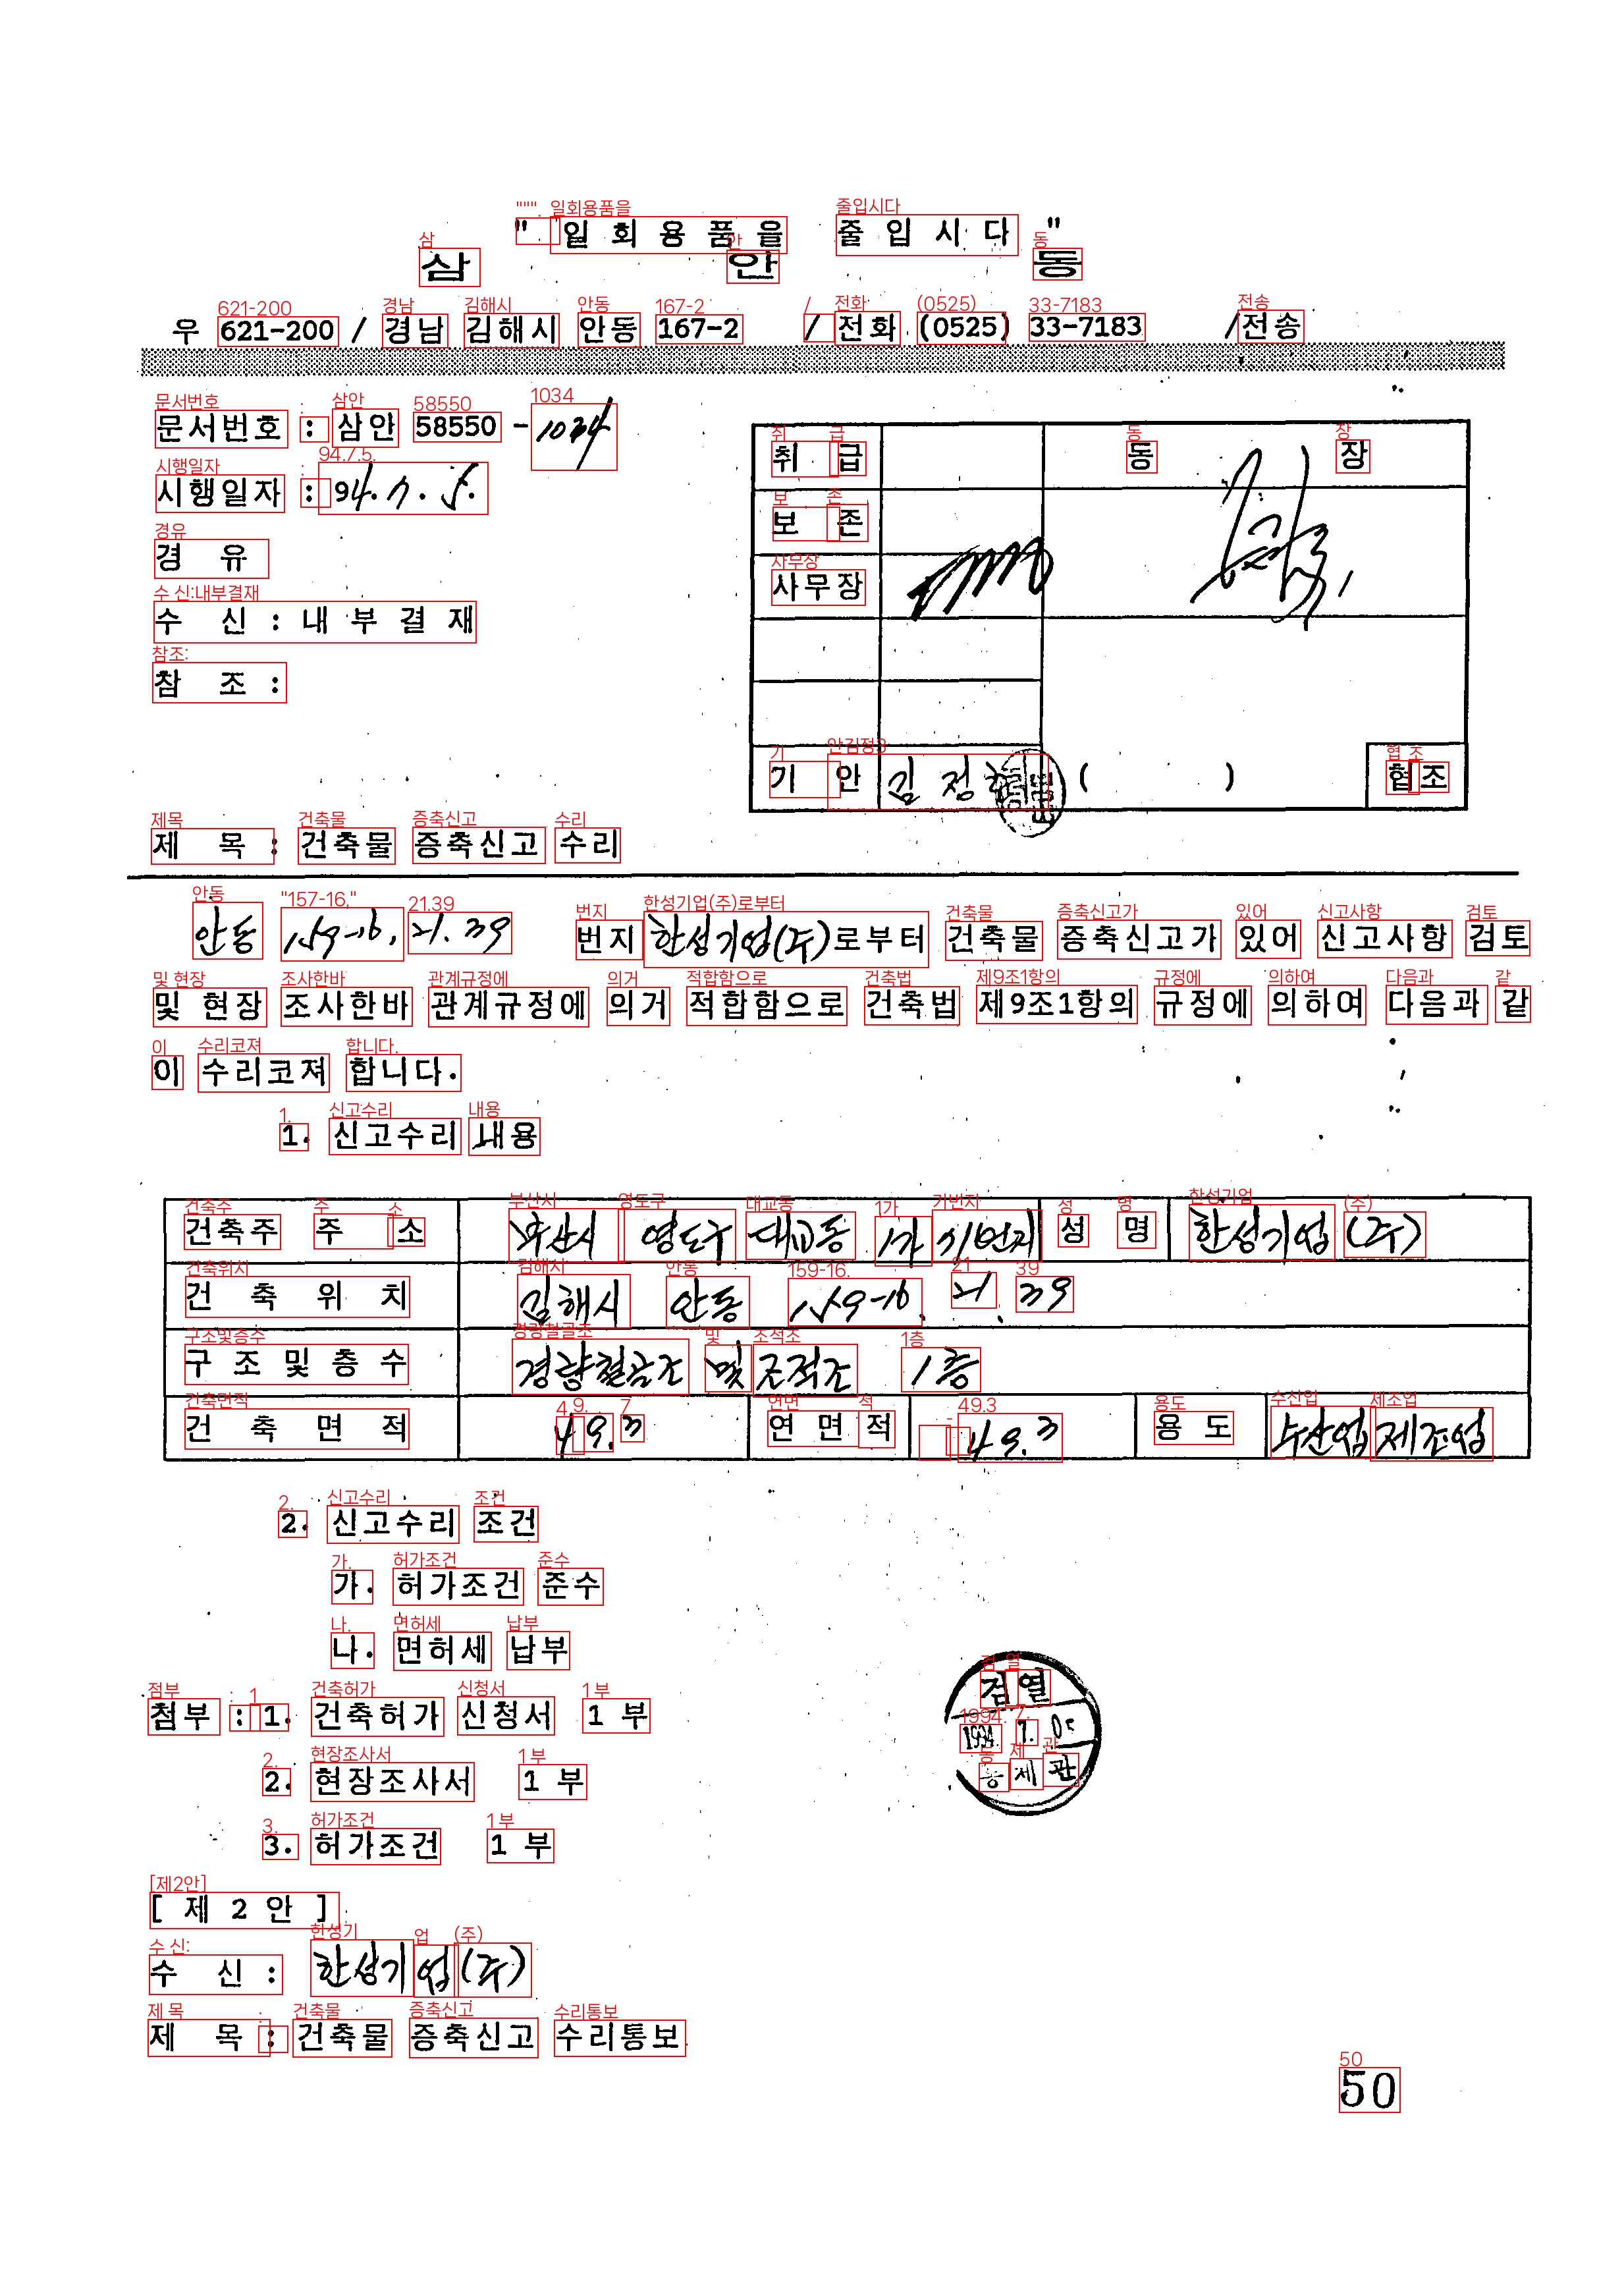 " 일 회 용 품 을 줄 입 시 다 "
삼 안 동
우 621-200 / 경남 김해시 안동 167-2 / 전화 (0525) 33-7183 / 전송
문서번호 : 삼안 58550 - 1034
시행일자 : 94. 7. 5.
경 유
수 신 : 내 부 결 재
참 조 :
취 급 동 장
보 존
사무장
기 안 김 정 ( ) 협조
제 목 : 건축물 증축신고 수리
안동 159-16, 21. 39 번지 한성기업(주)로부터 건축물 증축신고가 있어 신고사항 검토
및 현장 조사한바 관계규정에 의거 적합함으로 건축법 제9조1항의 규정에 의하여 다음과 같
이 수리코져 합니다.
1. 신고수리 내용
건축주 주 소 부산시 영도구 대교동 1가 번지 성 명 한성기업 (주)
건 축 위 치 김해시 안동 159-16. 21. 39
구 조 및 층 수 경량철골조 및 조적조 1층
건 축 면 적 49.3 연 면 적 49.3 용 도 수산업 제조업
2. 신고수리 조건
가. 허가조건 준수
나. 면허세 납부
첨부 : 1. 건축허가 신청서 1 부
2. 현장조사서 1 부
3. 허가조건 1 부
검열
1994. 7. 05
통 제 관
[ 제 2 안 ]
수 신 : 한성기업(주)
제 목 : 건축물 증축신고 수리통보
50